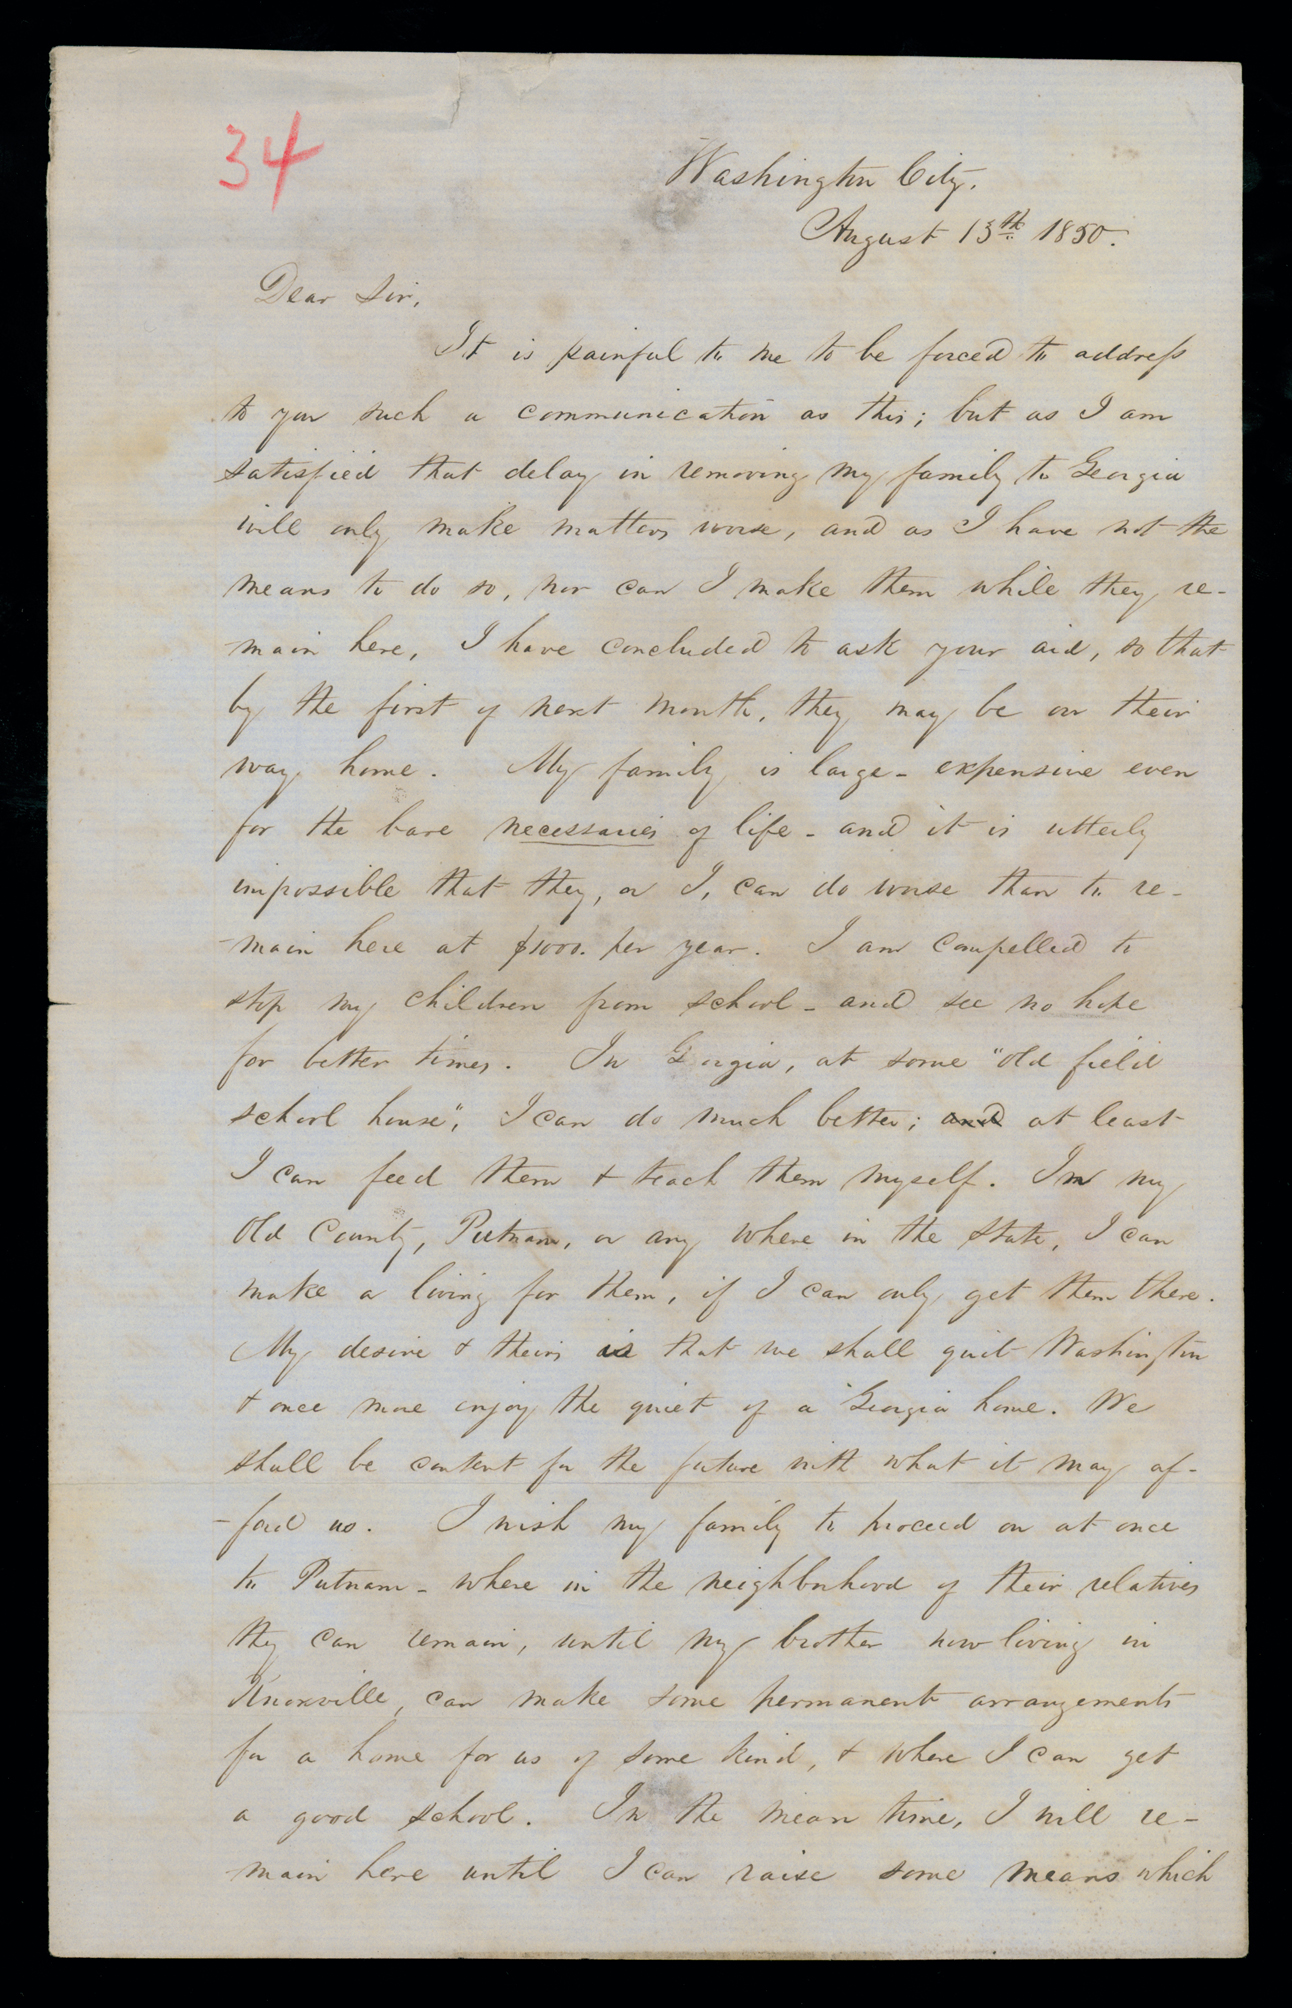 34
Washington City.
August 13th 1850.
Dear Sir,
It is painful to me to be forced to address
to you such a communication as this; but as I am
satisfied that delay in removing my family to Georgia
will only make matters worse, and as I have not the
means to do so, nor can I make them while they re-
-main here, I have concluded to ask your aid, so that
by the first of next month, they may be on their
way home. My family is large - expensive even
for the bare necessaries of life - and it is utterly
impossible that they, or I, can do worse than to re-
-main here at $1000. per year. I am compelled to
stop my children from school - and see no hope
for better times. In Georgia, at some "old field
school house", I can do much better; and at least
I can feed them & teach them myself. In my
old County, Putnam, or any where in the State, I can
make a living for them, if I can only get them there.
My desire & theirs is that we shall quit Washington
& once more enjoy the quiet of a Georgia home. We
shall be content for the future with what it may af-
-ford us. I wish my family to proceed on at once
to Putnam - where in the neighborhood of their relatives
they can remain, until my brother now living in
Knoxville, can make some permanent arrangements
for a home for us of some kind, & where I can get
a good school. In the mean time, I will re-
-main here until I can raise some means which